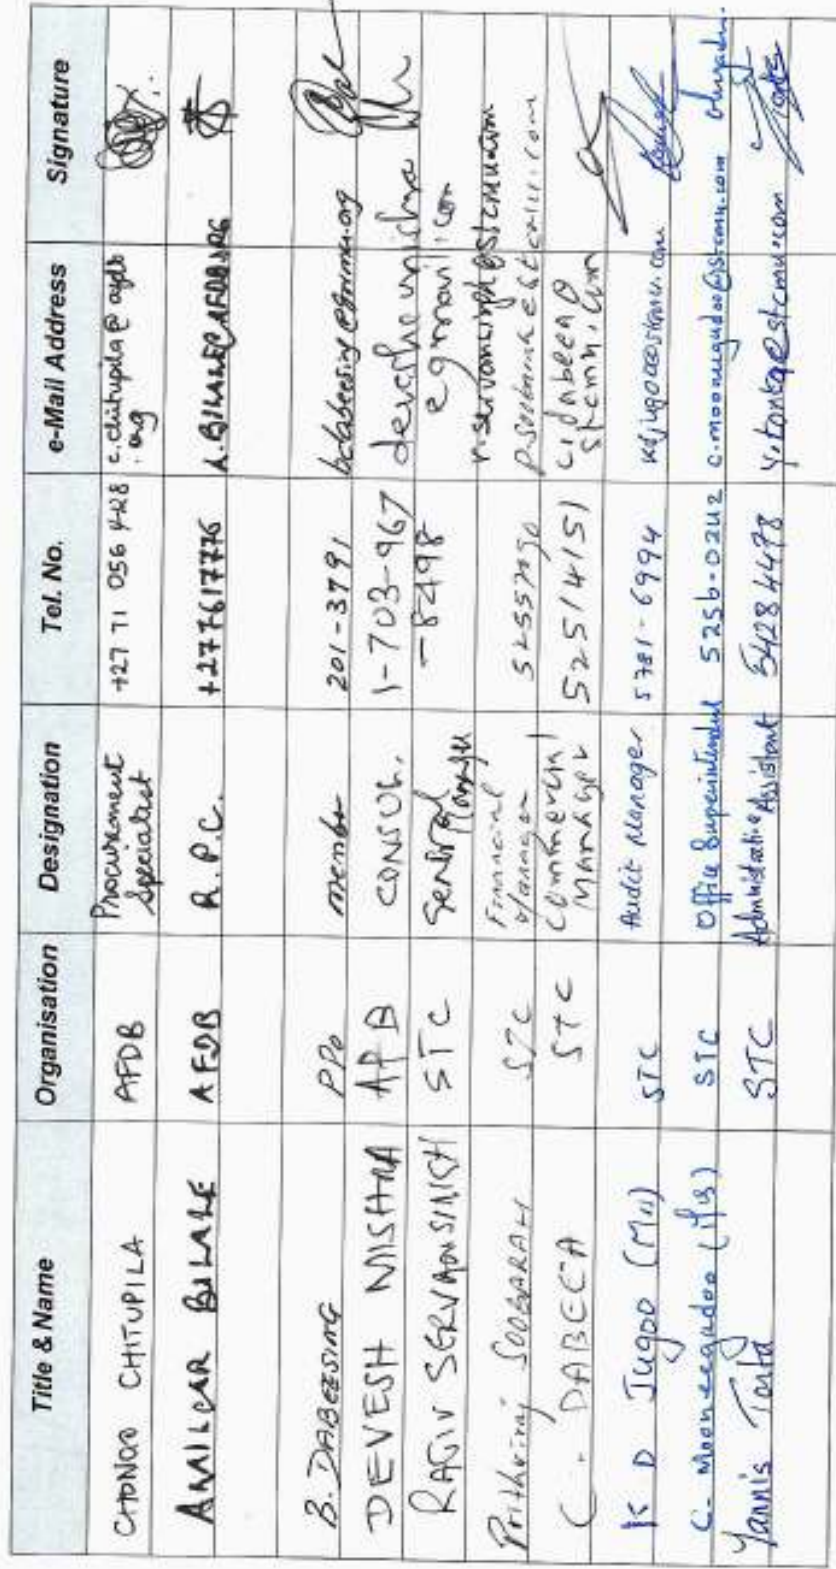 Title & Name Organisation Designation Tel. No. e-Mail Address Signature
CHONGO CHITUPILA AFDB Procurement Specialist +27 71 056 428 c.chitupila@afdb.org
AMILCAR BILALE AFDB R.P.C. +277617776 A.BILALE@AFDB.ORG
B. DABEESING PPO member 201-3791
DEVESH MISHRA AFDB CONSUL. 1-703-967-8498 deveshemishra@gmail.com
RAJIV SERVANSINGH STC General Manager r.servansingh@stcmu.com
Prithviraj SOOBARAH STC Financial Manager 52557030 p.soobarah@stcmu.com
C. DABEEA STC Commercial Manager 52514151 c.dabeea@stcmu.com
K D Jugoo (Mr) STC Audit Manager 5781-6994 kdjugoo@stcmu.com
C. Mooneegadoo (Mrs) STC Office Superintendent 5256-0242 c.mooneegadoo@stcmu.com
Yannis Tonta STC Administrative Assistant 54284478 y.tonta@stcmu.com